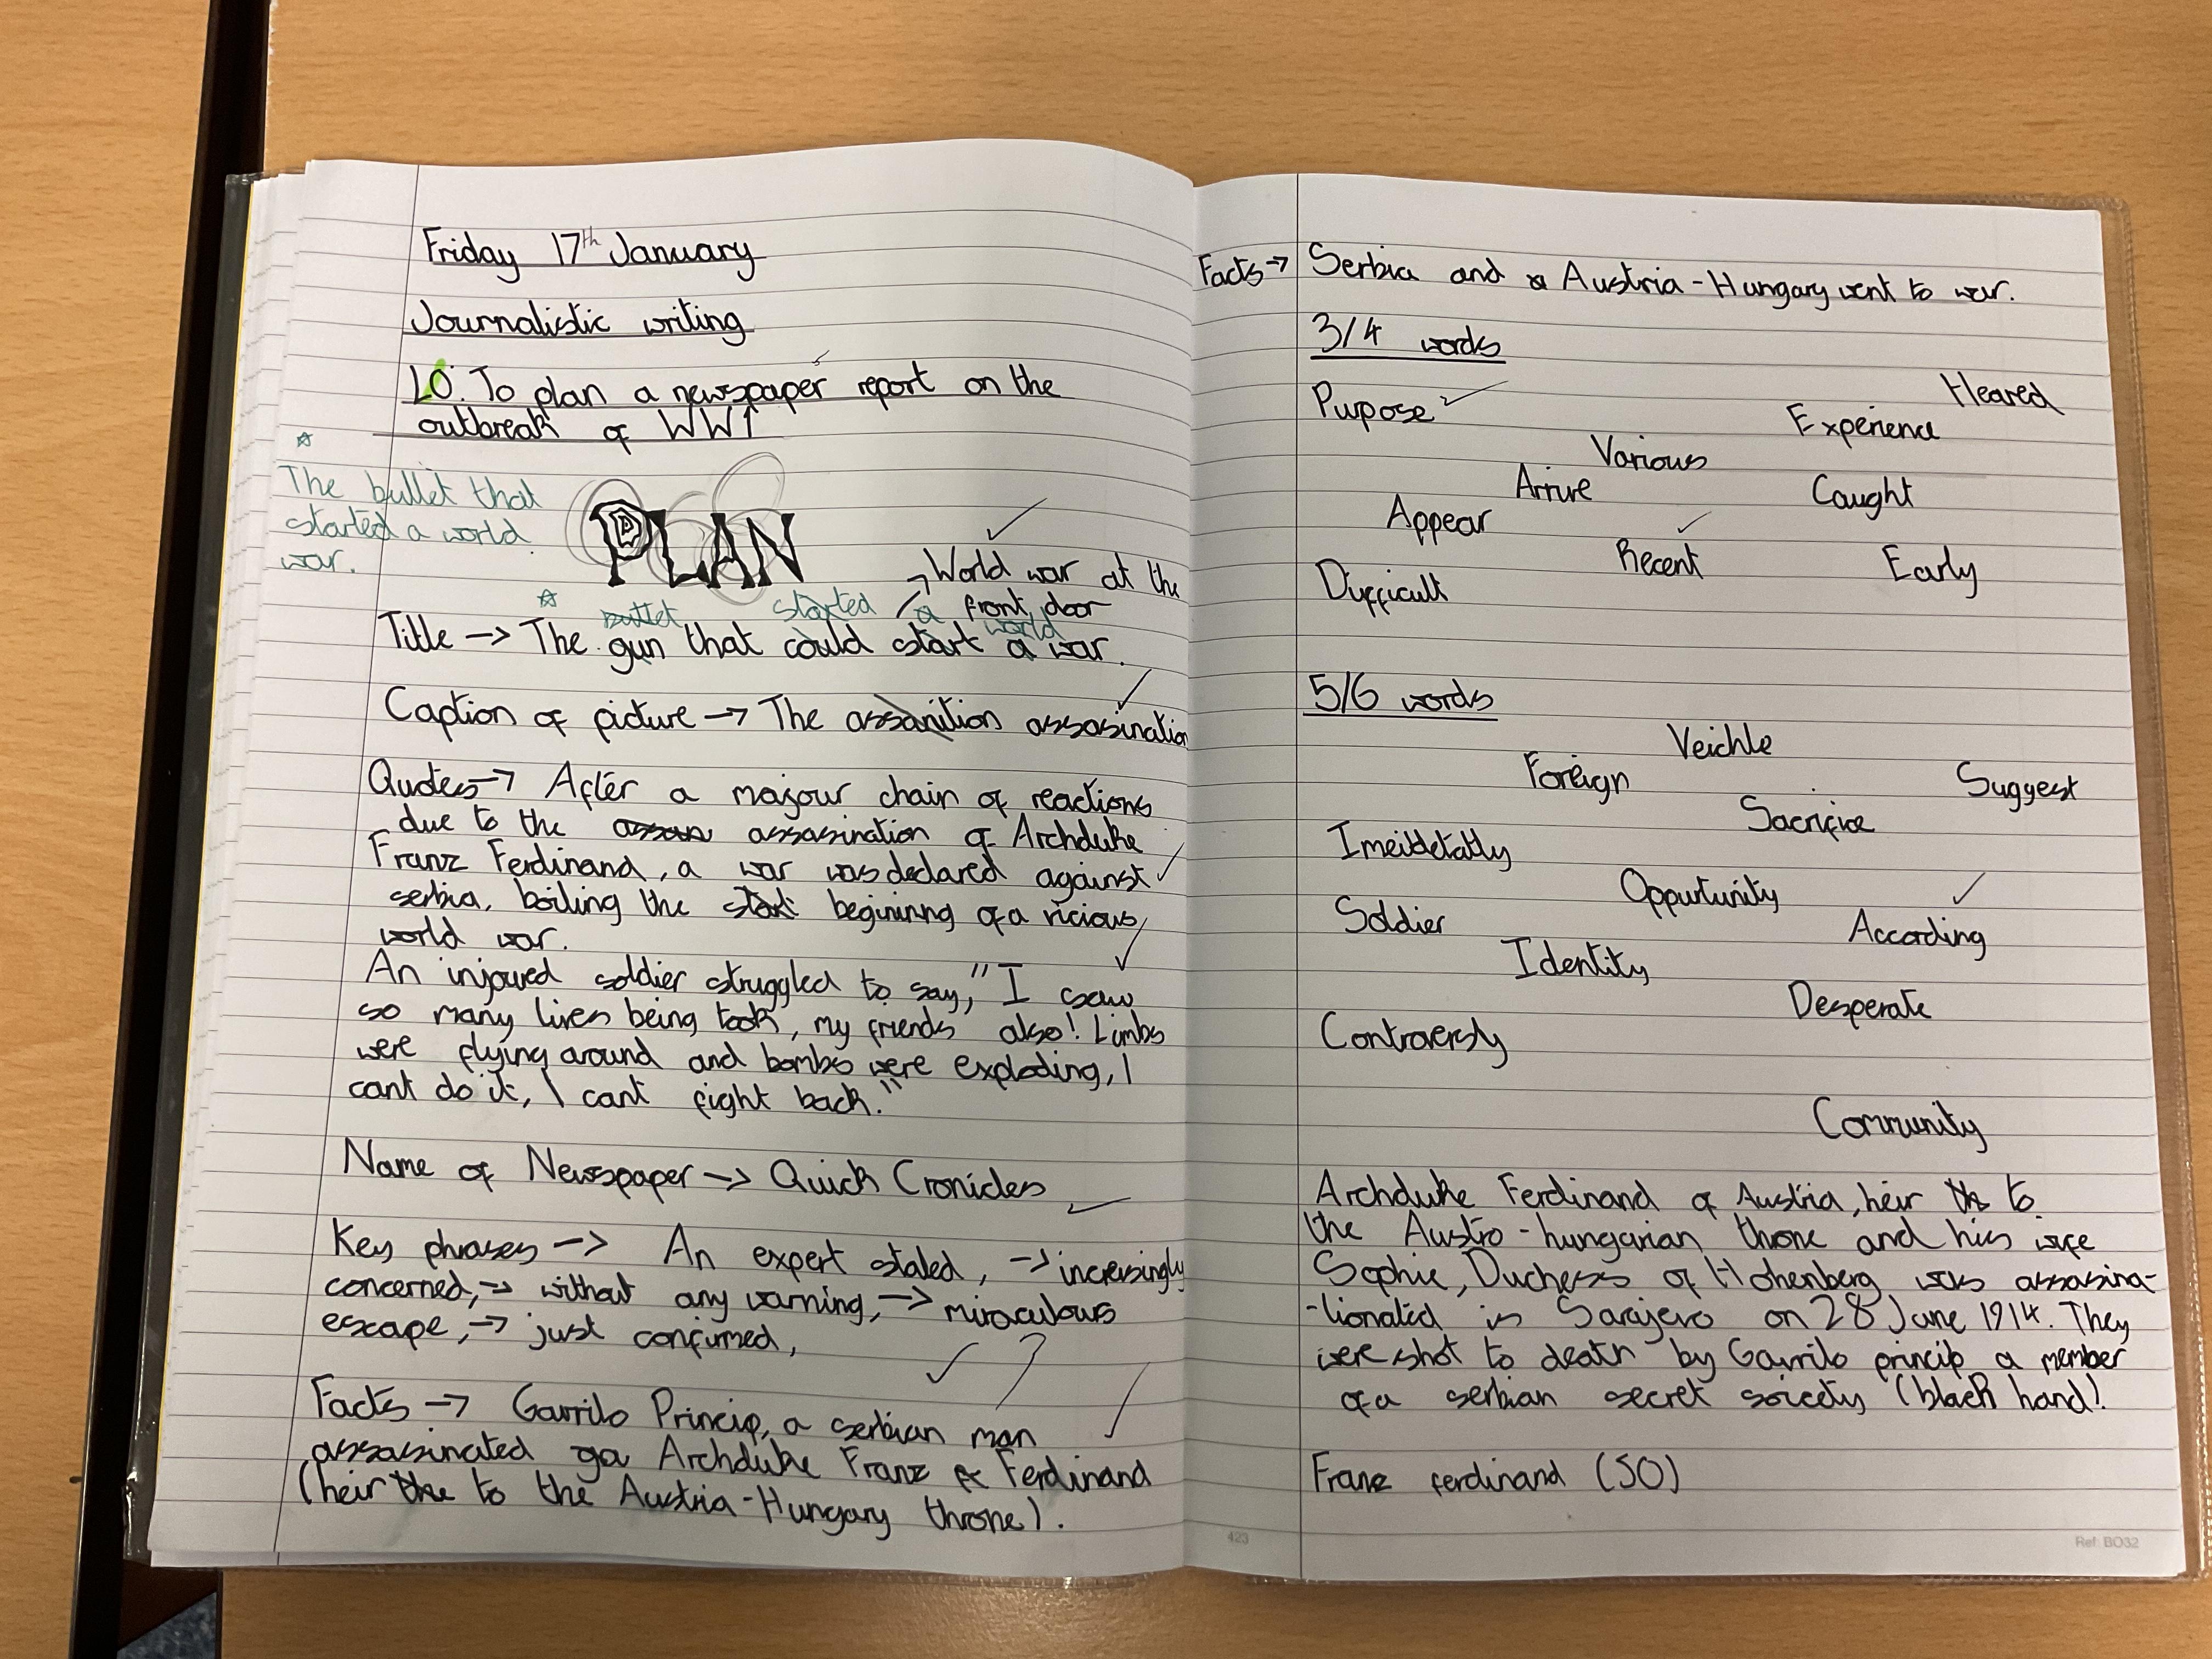 Friday 17th January
Journalistic writing
LO: To plan a newspaper report on the
outbreak of WW1
☆
The bullet that
started a world
war.
PLAN
→ World war at the
front door
☆ bullet started a world
Title → The gun that could start a war.
Caption of picture → The assanition assasination
Quotes → After a majour chain of reactions
due to the assan assasination of Archduke
Franz Ferdinand, a war was declared against
serbia, boiling the start begininng of a vicious
world war.
An injoured soldier struggled to say, "I saw
so many lives being took, my friends also! Limbs
were flying around and bombs were exploding, I
cant do it, I cant fight back."
Name of Newspaper → Quick Cronicles
Key phrases → An expert stated, → increasingly
concerned, → without any warning, → miraculous
escape, → just confirmed,
Facts → Gavrilo Princip, a serbian man
assasinated Archduke Franz Ferdinand
(heir the to the Austria-Hungary throne).
Facts → Serbia and a Austria-Hungary went to war.
3/4 words
Heared
Purpose
Experience
Various
Arrive
Caught
Appear
Recent
Early
Difficult
5/6 words
Veichle
Foreign
Suggest
Sacrifice
Oppurtunity
Soldier
According
Identity
Desperate
Controversy
Community
Archduke Ferdinand of Austria, heir to
the Austro-hungarian throne and his wife
Sophie, Duchess of Hohenberg was assasina-
-tionated in Sarajevo on 28 June 1914. They
were shot to death by Gavrilo princip a member
of a serbian secret soicety (black hand!
Franz ferdinand (50)
423
Ref: BO32